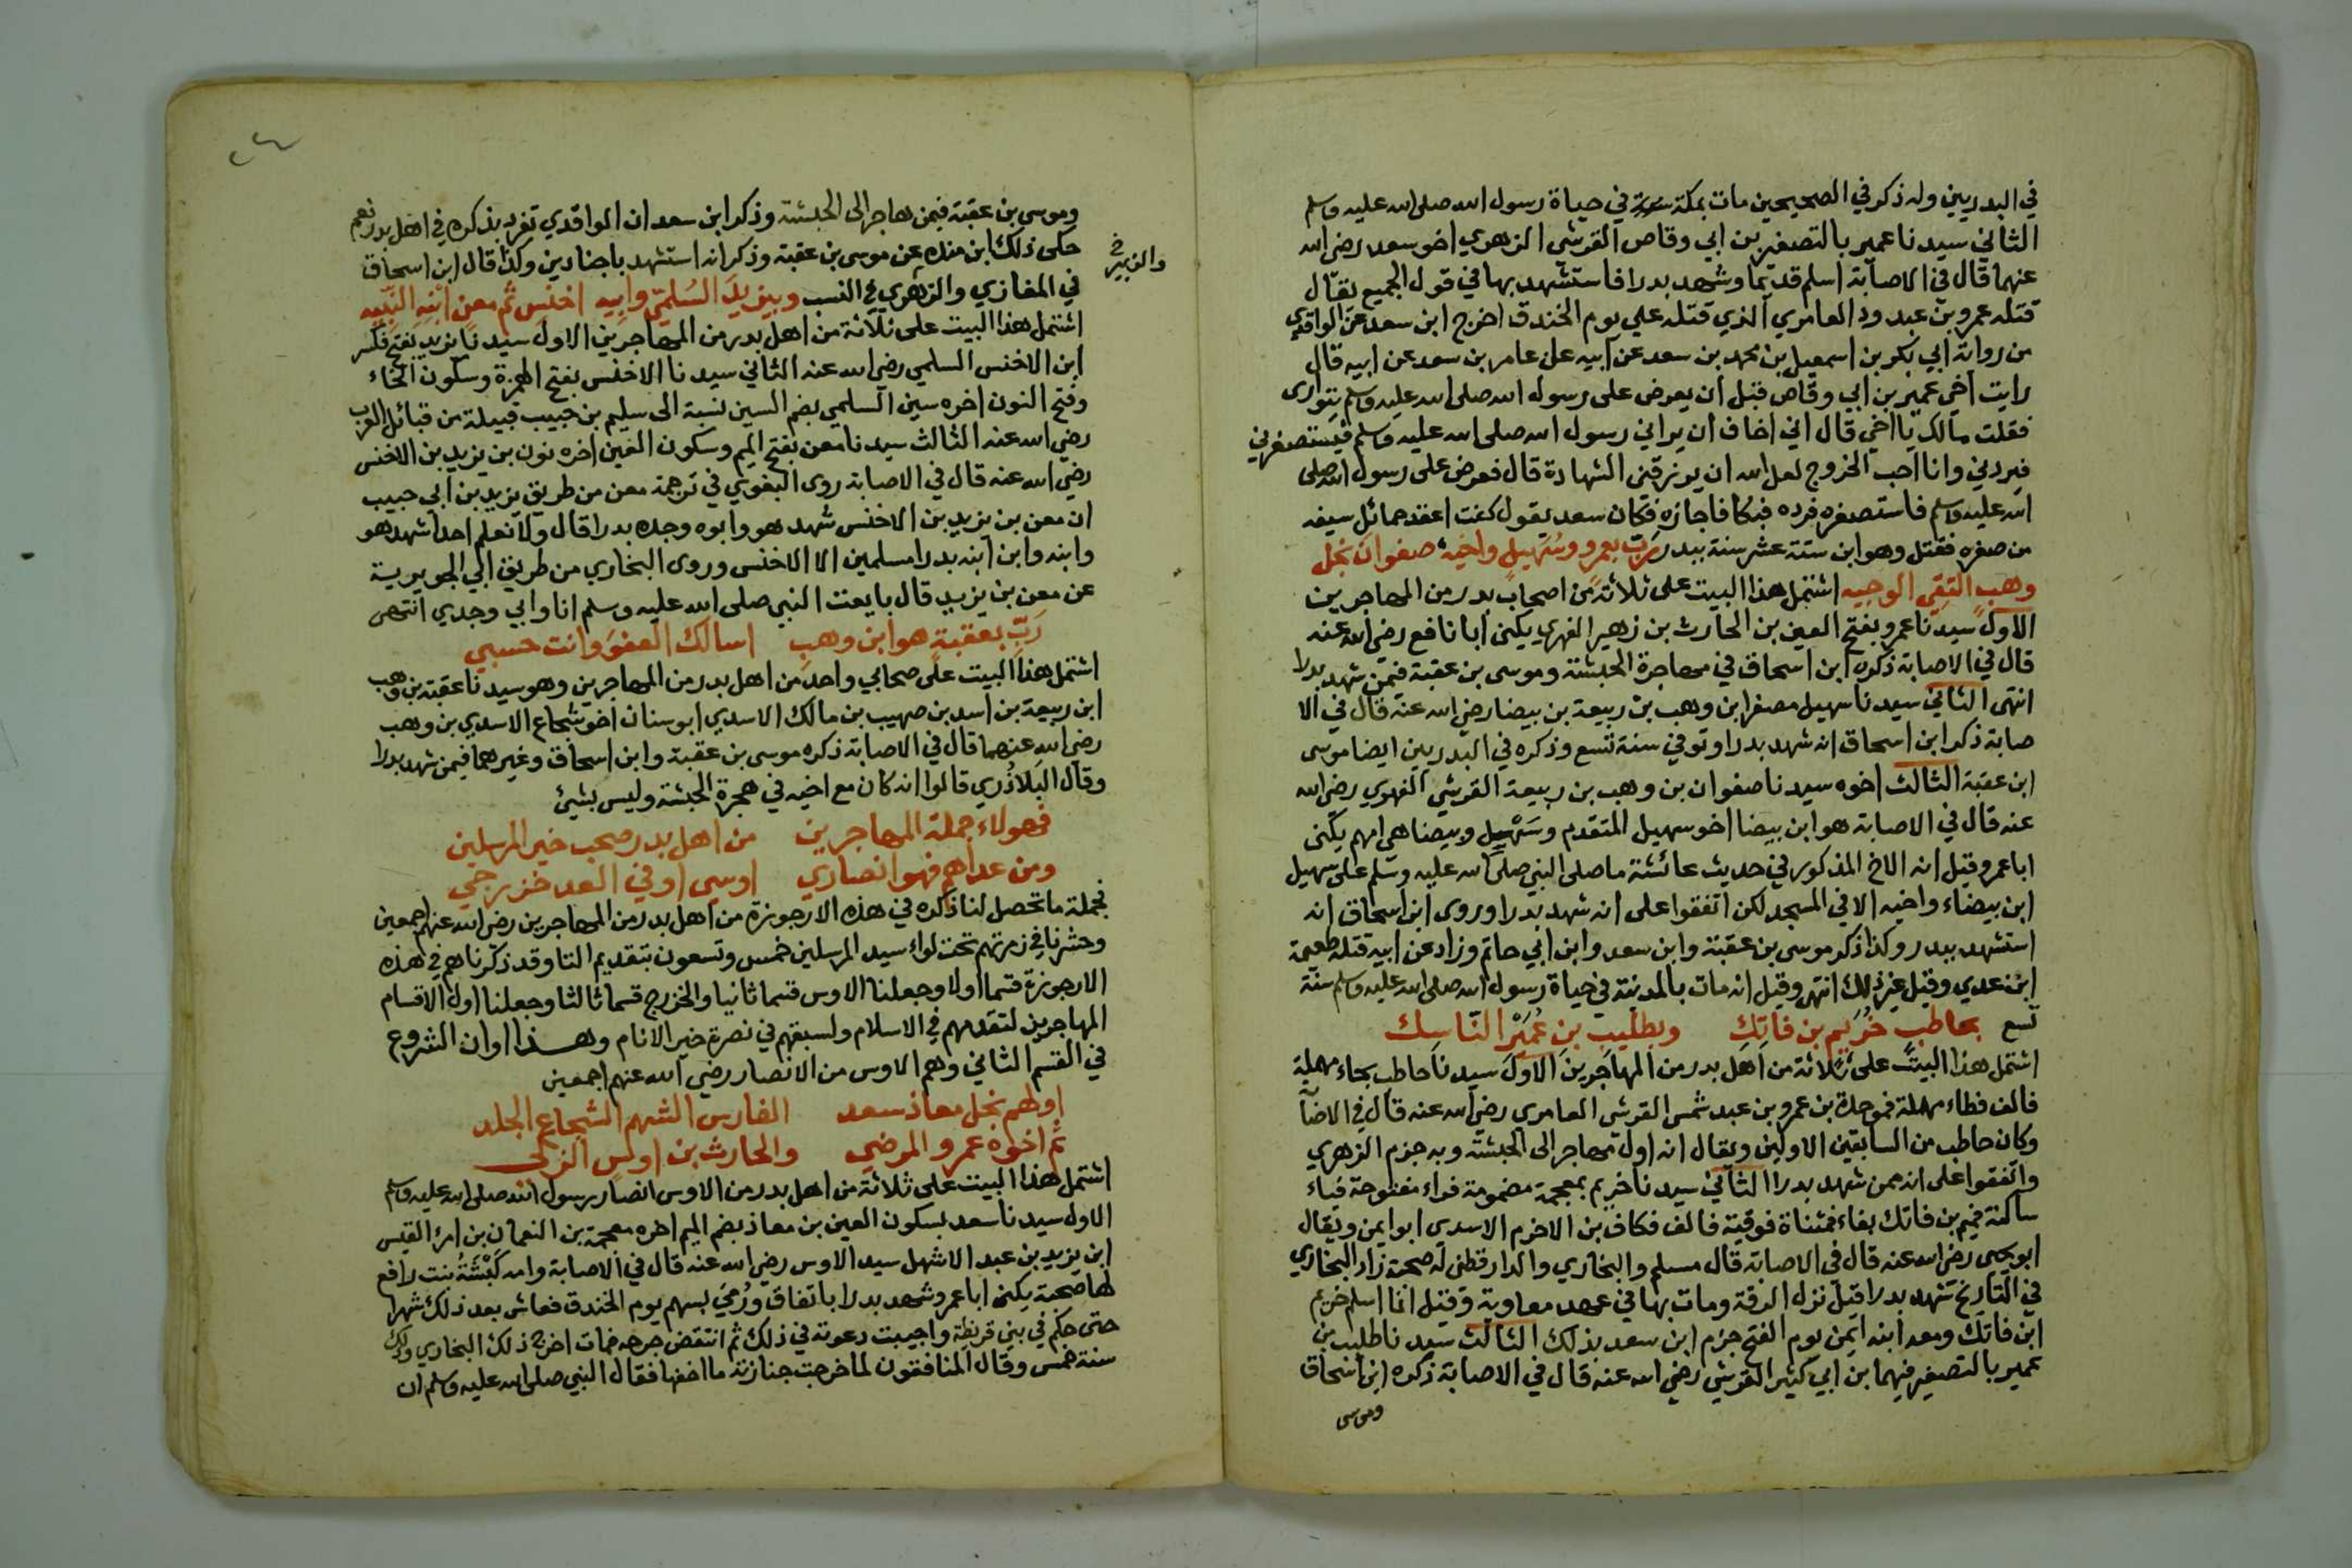 في البدريين وله ذكر في الصحيحين مات بمكة في حياة رسول الله صلى الله عليه وسلم
الثاني سيدنا عمير بالتصغير بن ابي وقاص القرشي الزهري اخو سعد رضي الله
عنهما قال في الاصابة اسلم قديما وشهد بدرا فاستشهد بها في قول الجميع يقال
قتله عمرو بن عبد ود العامري الذي قتله علي يوم الخندق اخرج ابن سعد عن الواقدي
من رواية ابي بكر بن اسمعيل بن محمد بن سعد عن ابيه عن عامر بن سعد عن ابيه قال
رايت اخي عمير بن ابي وقاص قبل ان يعرض على رسول الله صلى الله عليه وسلم يتوارى
فقلت مالك يا اخي قال اني اخاف ان يراني رسول الله صلى الله عليه وسلم فيستصغرني
فيردني وانا احب الخروج لعل الله ان يرزقني الشهادة قال فعرض على رسول الله صلى
الله عليه وسلم فاستصغره فرده فبكا فاجازه فكان سعد يقول كنت اعقد حمائل سيفه
من صغره فقتل وهو ابن ستة عشر سنة ببدر رب بعمرو وسهيل واخيه صفوان نجل
وهب التقي الوجيه اشتمل هذا البيت على ثلاثة من اصحاب بدر من المهاجرين
الاول سيدنا عمرو بفتح العين بن الحارث بن زهير الفهري يكنى ابا نافع رضي الله عنه
قال في الاصابة ذكره ابن اسحاق في مهاجرة الحبشة وموسى بن عقبة فيمن شهد بدرا
انتهى الثاني سيدنا سهيل مصغرا بن وهب بن ربيعة بن بيضا رضي الله عنه قال في الا
صابة ذكر ابن اسحاق انه شهد بدرا وتوفي سنة تسع وذكره في البدريين ايضا موسى
ابن عقبة الثالث اخوه سيدنا صفوان بن وهب بن ربيعة القرشي الفهري رضي الله
عنه قال في الاصابة هو ابن بيضا اخو سهيل المتقدم وسهيل وبيضا هي امهم يكنى
ابا عمرو قيل انه الاخ المذكور في حديث عائشة ما صلى النبي صلى الله عليه وسلم على سهيل
ابن بيضاء واخيه الا في المسجد لكن اتفقوا على انه شهد بدرا وروى ابن اسحاق انه
استشهد ببدر وكذا ذكر موسى بن عقبة وابن سعد وابن ابي حاتم وزاد عن ابيه قتله طعيمة
ابن عدي وقيل غير ذلك انتهى وقيل انه مات بالمدينة في حياة رسول الله صلى الله عليه وسلم سنة
تسع بحاطب خريم بن فاتك وبطليب بن عمير الناسك
اشتمل هذا البيت على ثلاثة من اهل بدر من المهاجرين الاول سيدنا حاطب بحاء مهملة
فالف فطاء مهملة فموحدة بن عمرو بن عبد شمس القرشي العامري رضي الله عنه قال في الاصا
وكان حاطب من السابقين الاولين ويقال انه اول مهاجر الى الحبشة وبه جزم الزهري
واتفقوا على انه ممن شهد بدرا الثاني سيدنا خريم بمعجمة مضمومة فراء مفتوحة فياء
ساكنة فميم بن فاتك بفاء فمثناة فوقية فالف فكاف بن الاخرم الاسدي ابو ايمن ويقال
ابو يحيى رضي الله عنه قال في الاصابة قال مسلم والبخاري والدارقطني له صحبة زاد البخاري
في التاريخ شهد بدرا قيل نزل الرقة ومات بها في عهد معاوية وقيل انما اسلم خريم
ابن فاتك ومعه ابنه ايمن يوم الفتح جزم ابن سعد بذلك الثالث سيدنا طليب بن
عمير بالتصغير فيهما بن ابي كثير القرشي رضي الله عنه قال في الاصابة ذكره ابن اسحاق
وموسى
وموسى بن عقبة فيمن هاجر الى الحبشة وذكر ابن سعد ان الواقدي تفرد بذكره في اهل بدر نعم
حكى ذلك ابن منده عن موسى بن عقبة وذكر انه استشهد باجنادين وكذا قال ابن اسحاق
والزبير في
في المغازي والزهري في النسب وبيزيد السلمي وابيه اخنس ثم معن ابنه النبيه
اشتمل هذا البيت على ثلاثة من اهل بدر من المهاجرين الاول سيدنا يزيد بفتح فكسر
ابن الاخنس السلمي رضي الله عنه الثاني سيدنا الاخنس بفتح الهمزة وسكون الخاء
وفتح النون اخره سين السلمي بضم السين نسبة الى سليم بن حبيب قبيلة من قبائل العرب
رضي الله عنه الثالث سيدنا معن بفتح الميم وسكون العين اخره نون بن يزيد بن الاخنس
رضي الله عنه قال في الاصابة روى البغوي في ترجمة معن من طريق يزيد بن ابي حبيب
ان معن بن يزيد بن الاخنس شهد هو وابوه وجده بدرا قال ولا نعلم احدا شهد هو
وابنه وابن ابنه بدرا مسلمين الا الاخنس وروى البخاري من طريق ابي الجويرية
عن معن بن يزيد قال بايعت النبي صلى الله عليه وسلم انا وابي وجدي انتهى
رب بعقبة هو ابن وهب اسالك العفو وانت حسبي
اشتمل هذا البيت على صحابي واحد من اهل بدر من المهاجرين وهو سيدنا عقبة بن وهب
ابن ربيعة بن اسد بن صهيب بن مالك الاسدي ابو سنان اخو شجاع الاسدي بن وهب
رضي الله عنهما قال في الاصابة ذكره موسى بن عقبة وابن اسحاق وغيرهما فيمن شهد بدرا
وقال البلاذري قالوا انه كان مع اخيه في هجرة الحبشة وليس بشيئ
فهولاء جملة المهاجرين من اهل بدر صحب خير المرسلين
ومن عداهم فهو انصاري اوسي او في العد خزرجي
فجملة ما تحصل لنا ذكره في هذه الارجوزة من اهل بدر من المهاجرين رضي الله عنهم اجمعين
وحشرنا في زمرتهم تحت لواء سيد المرسلين خمس وتسعون بتقديم التا وقد ذكرناهم في هذه
الارجوزة قسما اولا وجعلنا الاوس قسما ثانيا والخزرج قسما ثالثا وجعلنا اول الاقسام
المهاجرين لتقدمهم في الاسلام ولسبقهم في نصرة خير الانام وهذا اوان الشروع
في القسم الثاني وهم الاوس من الانصار رضي الله عنهم اجمعين
اولهم نجل معاذ سعد الفارس الشهم الشجاع الجلد
ثم اخوه عمرو المرضي والحارث بن اوس الزكي
اشتمل هذا البيت على ثلاثة من اهل بدر من الاوس انصار رسول الله صلى الله عليه وسلم
الاول سيدنا سعد بسكون العين بن معاذ بضم الميم اخره معجمة بن النعمان بن امرئ القيس
ابن يزيد بن عبد الاشهل سيد الاوس رضي الله عنه قال في الاصابة وامه كبشة بنت رافع
لها صحبة يكنى ابا عمرو شهد بدرا باتفاق ورمي بسهم يوم الخندق فعاش بعد ذلك شهرا
حتى حكم في بني قريظة واجيبت دعوته في ذلك ثم انتقض جرحه فمات اخرج ذلك البخاري وذلك
سنة خمس وقال المنافقون لما خرجت جنازته ما اخفها فقال النبي صلى الله عليه وسلم ان